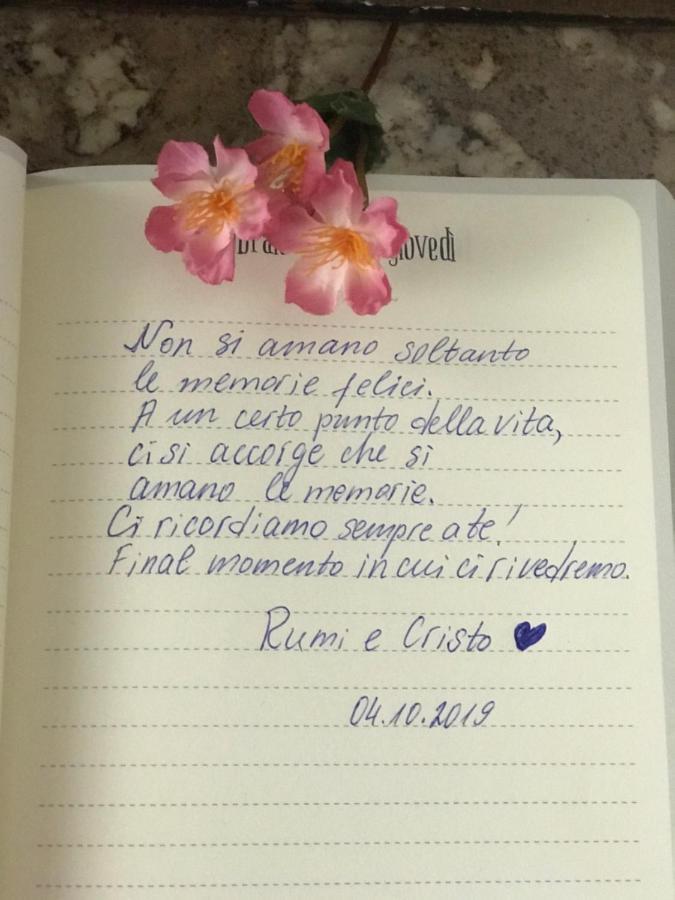 giovedì
Non si amano soltanto
le memorie felici.
A un certo punto della vita,
ci si accorge che si
amano le memorie.
Ci ricordiamo sempre a te!
Final momento in cui ci rivedremo.
Rumi e Cristo
04.10.2019